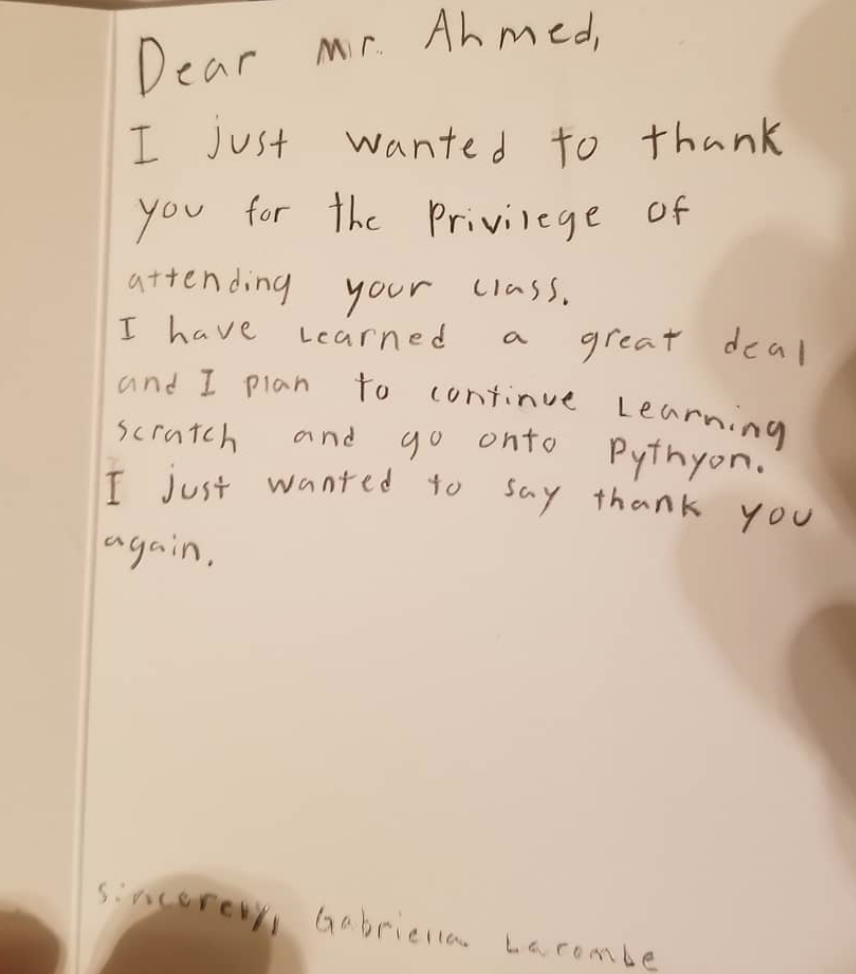 Dear Mr. Ahmed,
I just wanted to thank
you for the privilege of
attending your class.
I have Learned a great deal
and I plan to continue Learning
scratch and go onto Pythyon.
I just wanted to say thank you
again.
Sincerely, Gabriella Larombe